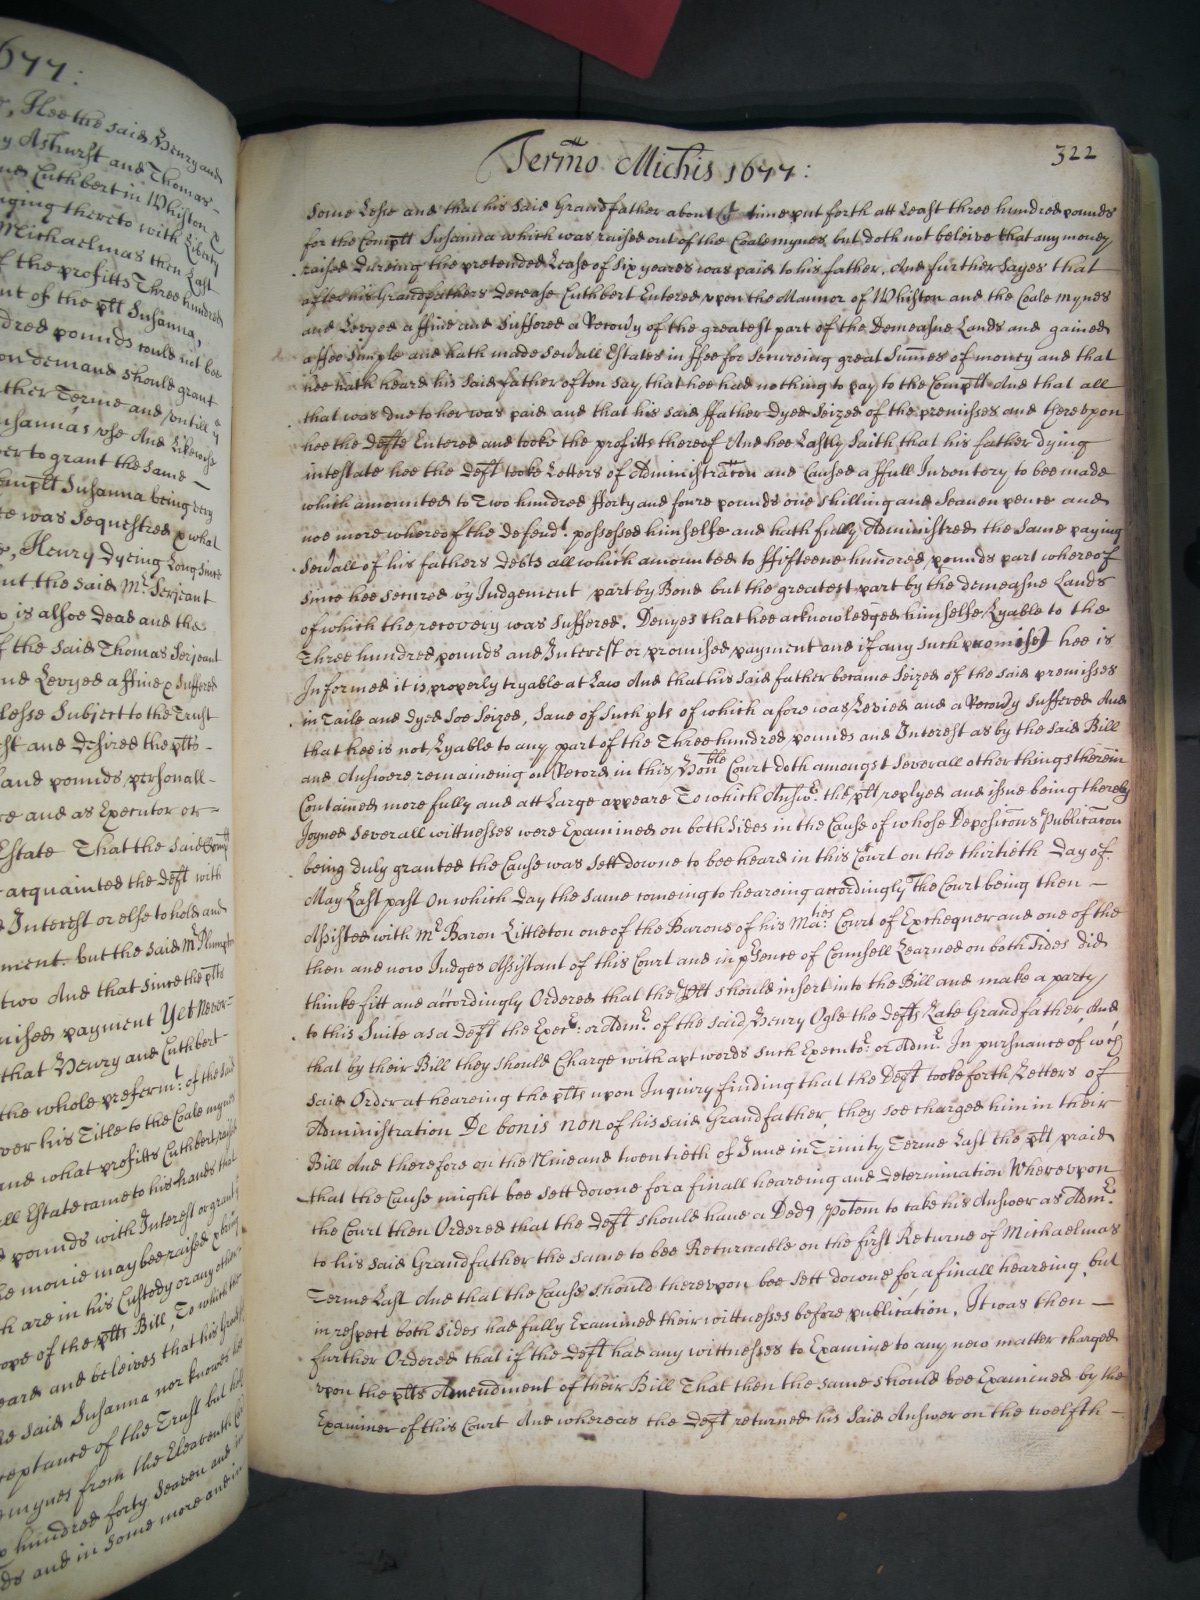 1677:
Hee the said Henry and
Ashurst and Thomas
Cuthbert in Whiston &
thereto with Liberty
Michaelmas then Last
the profitts Three hundred
of the plt Susanna,
pounds could not bee
demand should grant
Terme and vntill
vse And Likewise
to grant the same
Complt Susanna being very
was Sequestred & what
Henry Dyeing Long since
the said Mr Serjeant
is alsoe Dead and the
the said Thomas Serjeant
Levyed a ffine & Suffered
Subject to the Trust
and Desired the plts
pounds personall
and as Executor or
Estate That the said Compl
acquainted the Deft with
Interest or else to hold and
but the said Mr Plumpton
two And that since the plts
payment Yet Never
that Henry and Cuthbert
the whole prefermt: of the said
his Title to the Coale mynes
and what profitts Cuthbert raised
Estate came to his hands that
pounds with Interest or grant
monie may bee raised & bring
are in his Custody or any other
of the plts Bill, To which the
and beleives that his Grand
said Susanna nor knowes hee
of the Trust but
mynes from the Eleaventh
hundred forty Seaven and
and in some more and in
Termo Michis 1677:
322
some Lesse and that his said Grandfather about time put forth att Least three hundred pounds
for the Complt Susanna which was raised out of the Coale mynes but doth not beleive that any money
raised Dureing the pretended Lease of Six yeares was paid to his father. And further Sayes that
after his Grandfathers Decease Cuthbert Entered vpon the Mannor of Whiston and the Coale mynes
and Levyed a ffine and Suffered a Recovy of the greatest part of the Demeasne Lands and gained
a ffee simple and hath made Sevall Estates in ffee for secureing great Summes of money and that
hee hath heard his said father often say, that hee had nothing to pay to the Complt And that all
that was due to her was paid and that his said ffather Dyed Seized of the premisses and therevpon
hee the Defte Entered and tooke the profitts thereof And hee Lastly Saith that his father dying
intestate hee the Deft tooke Letters of Administracon and Caused a ffull Inventory to bee made
which amounted to Two hundred fforty and foure pounds one shilling and Seaven pence and
noe more whereof the Defendt. possessed himselfe and hath fully Administred the same paying
Sevall of his fathers Debts all which amounted to ffifteene hundred pounds part whereof
since hee secured by Judgement, part by Bond but the greatest part by the demeasne Lands
of which the recovery was Suffered. Denyes that hee acknowledged himselfe Lyable to the
Three hundred pounds and Interest or promised payment and if any such promise hee is
Informed it is properly tryable at Law And that his said father became Seized of the said premisses
in Taile and dyed soe Seized, Save of such pts of which a fine was Levied and a Recovy suffered And
that hee is not Lyable to any part of the Three hundred pounds and Interest as by the said Bill
and Answere remaineing on Record in this Honble Court doth amongst severall other things therein
Contained more fully and att Large appeare To which Answr. the plt replyed and issue being thereby
Joyned severall wittnesses were Examined on both sides in the Cause of whose Depositions Publicacon
being duly granted the Cause was sett downe to bee heard in this Court on the thirtieth Day of
May Last past On which Day the same comeing to heareing accordingly The Court being then
Assisted with Mr Baron Littleton one of the Barons of his Maties Court of Exchequer and one of the
then and now Judges Assistant of this Court and in psence of Counsell Learned on both sides did
thinke fitt and accordingly Ordered that the Plt should insert into the Bill and make a party
to this Suite as a Deft the Execr: or Admr. of the said Henry Ogle the Defts Late Grandfather And
that by their Bill they should Charge with apt words such Executor. or Admr. In pursuance of wch
said Order at heareing the plts upon Inquiry finding that the Deft tooke forth Letters of
Administration De bonis non of his said Grandfather, they soe charged him in their
Bill And therefore on the Nine and twentieth of June in Trinity Terme Last the plt praid
that the Cause might bee sett downe for a finall heareing and Determination Wherevpon
the Court then Ordered that the Deft should have a Ded9 potem to take his Answer as Admr.
to his said Grandfather the same to bee Returnable on the first Returne of Michaelmas
Terme Last And that the Cause should therevpon bee sett downe for a finall heareing, but
in respect both sides had fully Examined their wittnesses before publication. It was then
further Ordered that if the Deft had any wittnesses to Examine to any new matter charged
vpon the plts Amendment of their Bill That then the same should bee Examined by the
Examiner of this Court And whereas the Deft returned his said Answer on the twelfth